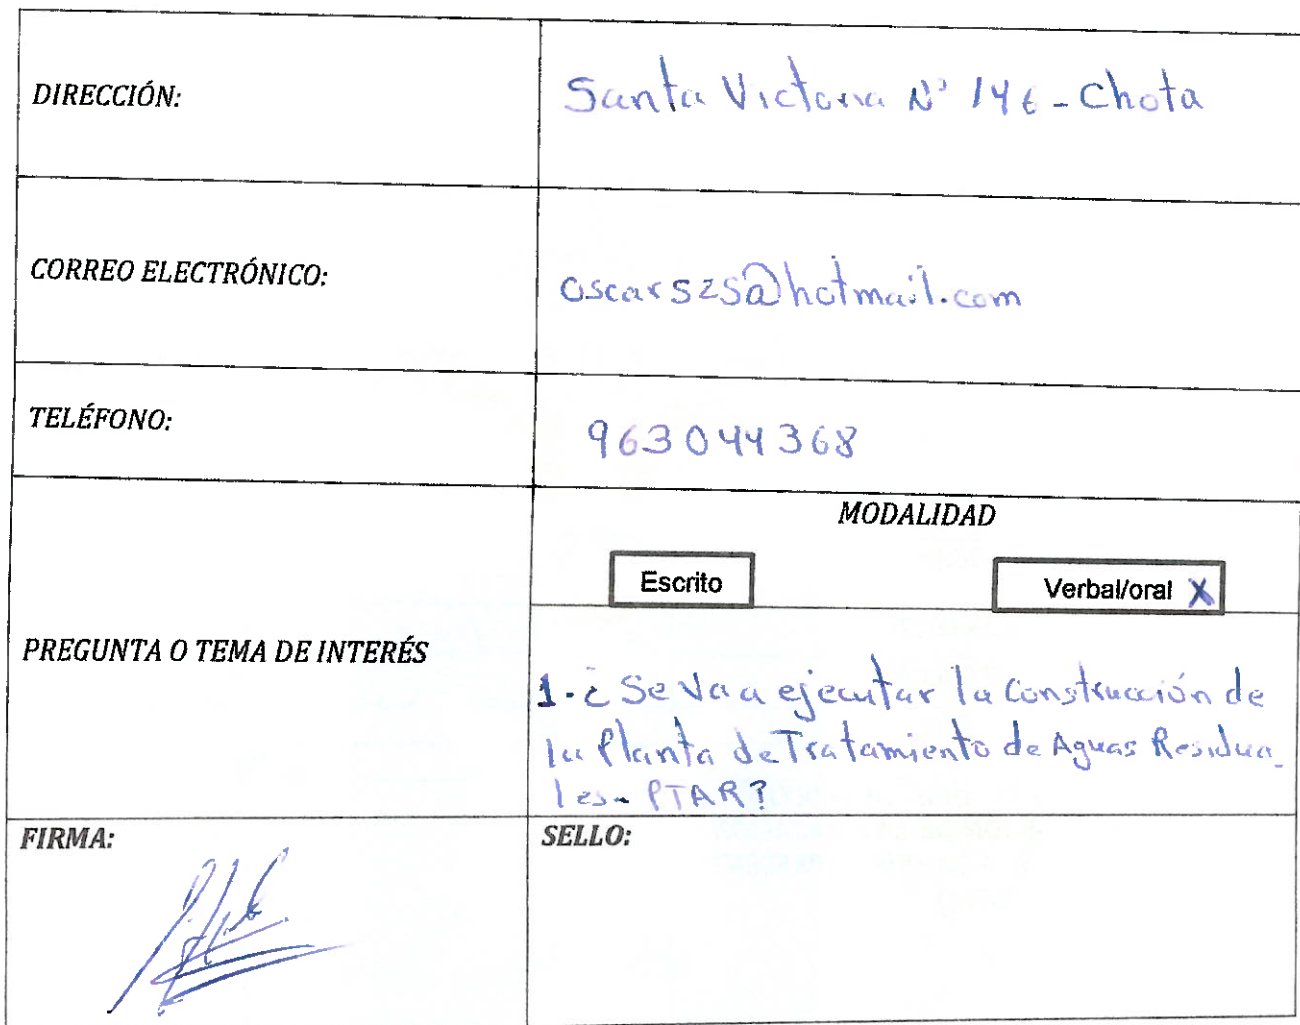 DIRECCIÓN:
Santa Victoria N° 146 - Chota
CORREO ELECTRÓNICO:
oscars2s@hotmail.com
TELÉFONO:
963044368
MODALIDAD
Escrito
Verbal/oral X
PREGUNTA O TEMA DE INTERÉS
1.- ¿Se va a ejecutar la Construcción de
la Planta de Tratamiento de Aguas Residua_
les - PTAR?
FIRMA:
SELLO: